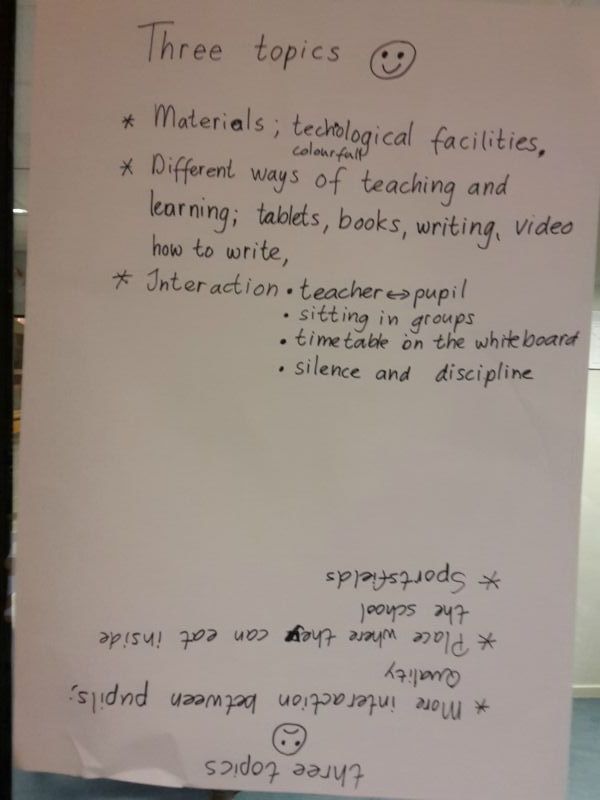 Three topics
* Materials; techological facilities.
colourfull
* Different ways of teaching and
learning; tablets, books, writing, video
how to write,
* Interaction • teacher ↔ pupil
• sitting in groups
• timetable on the whiteboard
• silence and discipline
three topics
* More interaction between pupils;
Quality
* Place where they can eat inside
the school
* Sportsfields